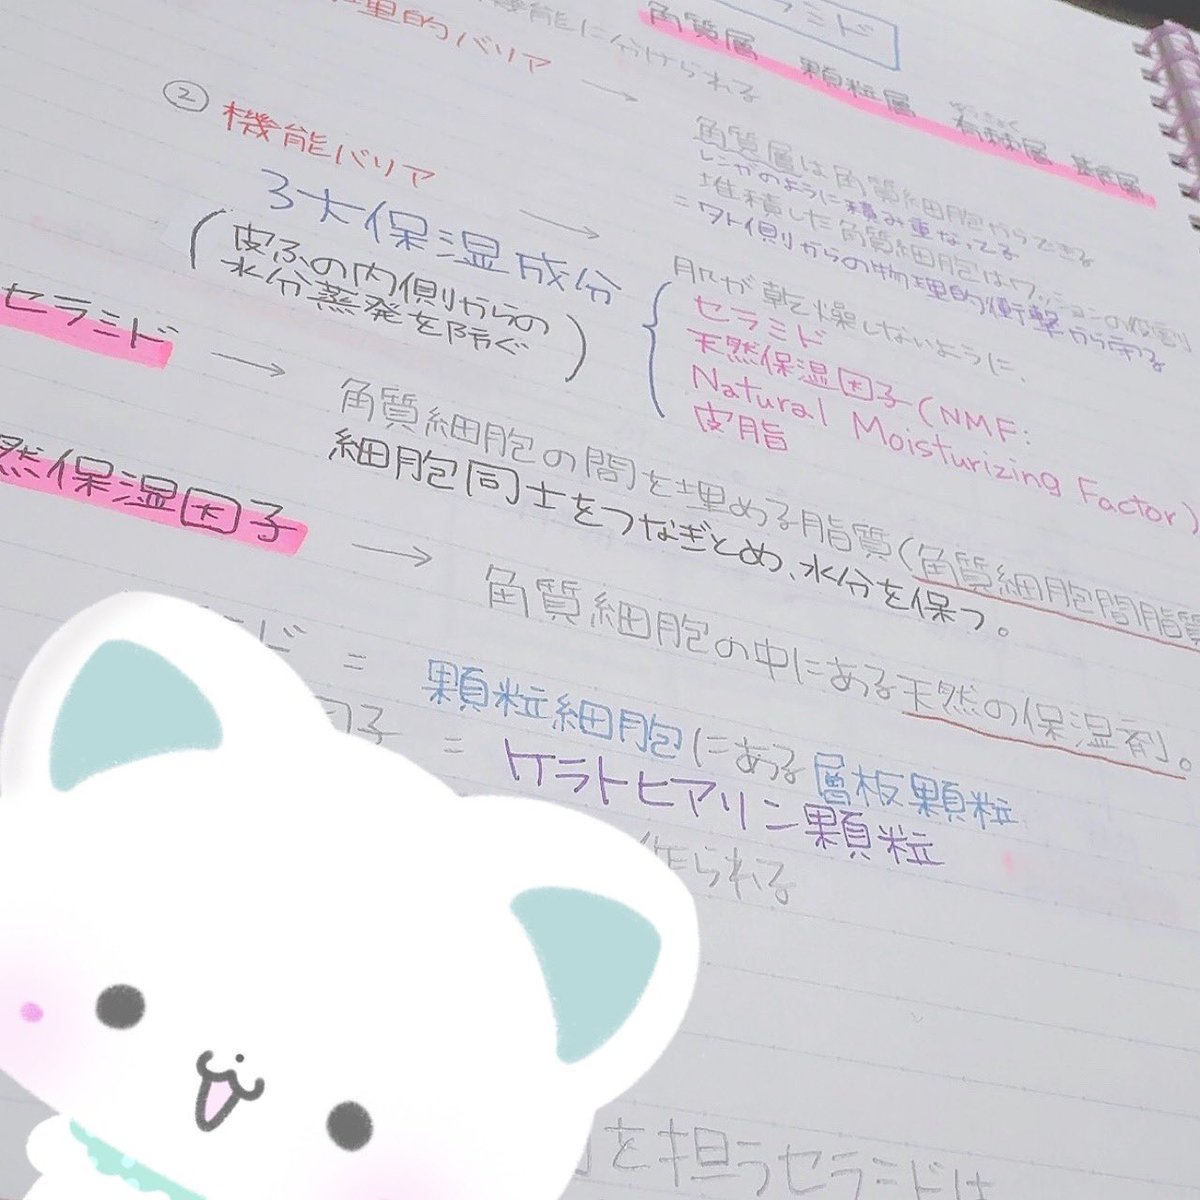 ミド
角質層 顆粒層 有棘層 基底層
機能に分けられる
理的バリア
角質層は角質細胞からできる
レンガのように積み重なってる
堆積した角質細胞はクッションの役割
=外側からの物理的衝撃から守る
② 機能バリア
肌が乾燥しないように、
3大保湿成分
(皮ふの内側からの
水分蒸発を防ぐ)
セラミド
天然保湿因子(NMF:
Natural Moisturizing Factor)
皮脂
セラミド
角質細胞の間を埋める脂質(角質細胞間脂質
細胞同士をつなぎとめ、水分を保つ。
然保湿因子
角質細胞の中にある天然の保湿剤。
ミド = 顆粒細胞にある層板顆粒
因子 = ケラトヒアリン顆粒
作られる
を担うセラミドは